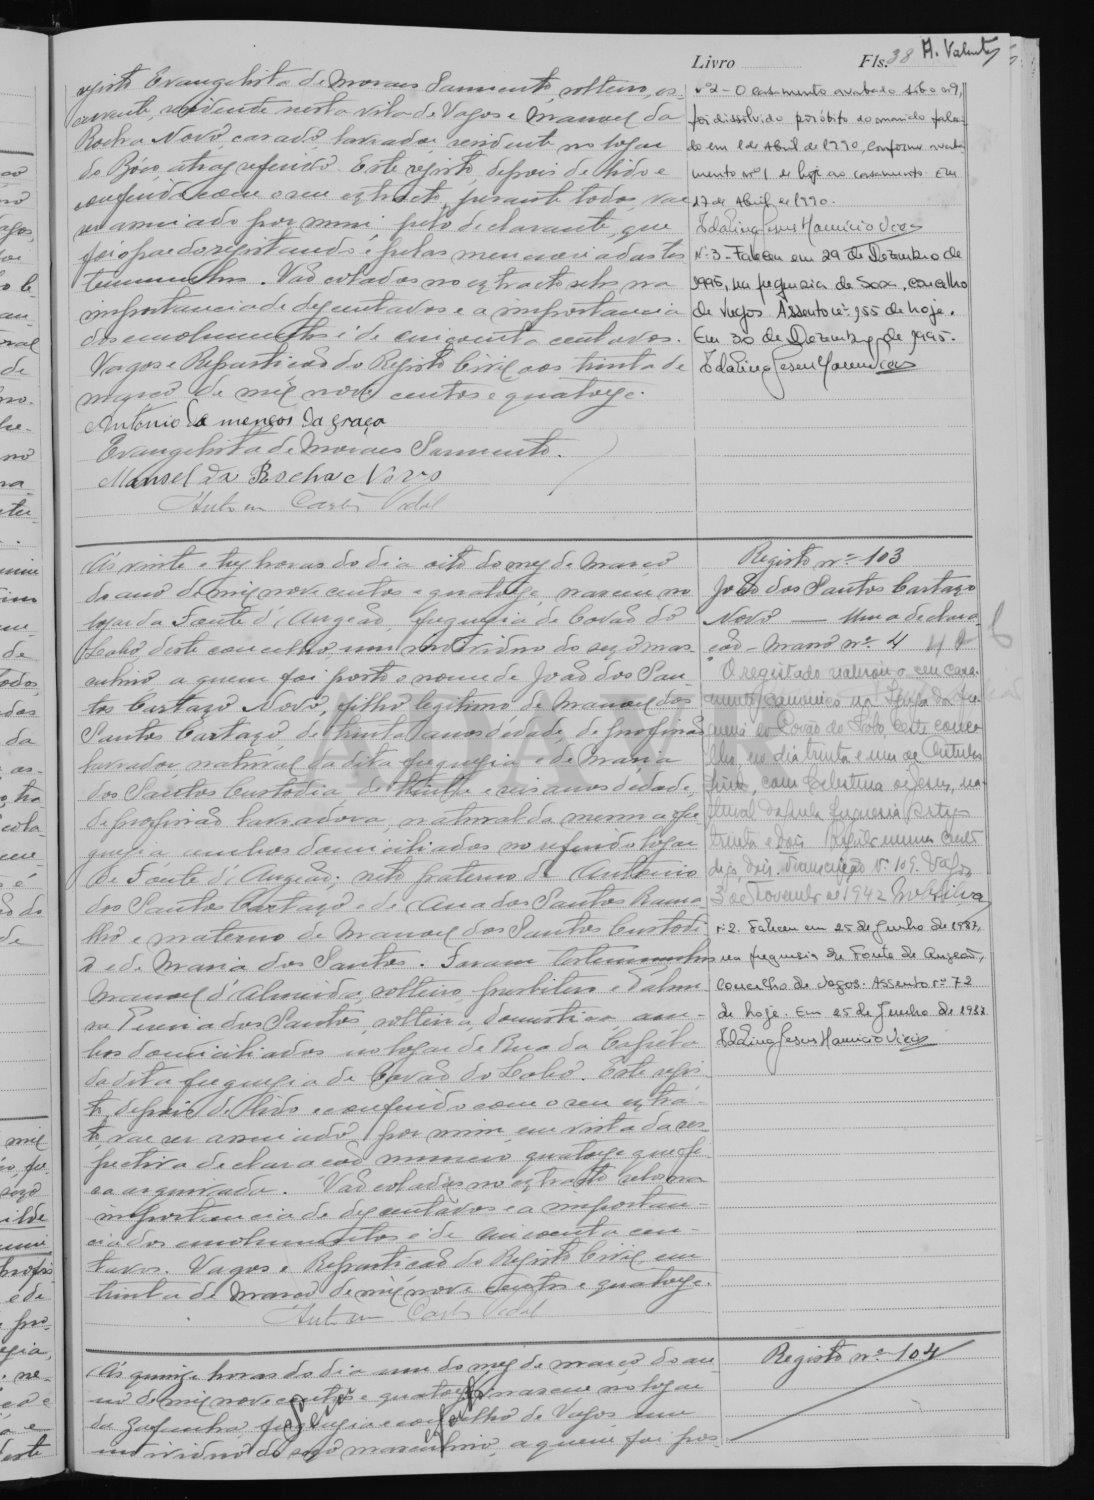 Livro Fls. 38 A. Valente
registo Evangelista de Moraes Sarmento, solteiro, es-
crevente, residente nesta vila de Vagos e Manoel da
Rocha Novo, casado, lavrador residente no logar
do Bóco, atraz referido. Este registo, depois de lido e
conferido com o seu extracto, perante todos, vae
ser assinado por mim, pelo declarante, que
foi o pae do registando e pelas mencionadas tes
temunhas. Vão colados no extracto selos na
importancia de dez centavos e a importancia
dos emolumentos é de cincoenta centavos.
Vagos e Repartição do Registo Civil aos trinta de
março de mil nove centos e quatorze.
Antonio da graça
Evangelista de Moraes Sarmento.
Manoel da Rocha Novo
Antonio Carlos Vidal
Nº 2 - O casamento averbado sob o nº 1,
foi dissolvido por óbito do marido faleci-
do em 1 de Abril de 1990, conforme averba
mento nº 1 de hoje ao casamento. Em
17 de Abril de 1990.
Nº 3 - Faleceu em 29 de Dezembro de
1995, na freguesia de Soza, concelho
de Vagos. Assento nº 155 de hoje.
Em 30 de Dezembro de 1995.
Ás vinte e trez horas do dia oito do mez de Março
do ano de mil nove centos e quatorze, nasceu no
logar da Fonte d'Angeão, freguezia de Covão do
Lobo, deste concelho, um individuo do sexo mas-
culino a quem foi posto o nome de João dos San-
tos Cartaxo Novo, filho legitimo de Manoel dos
Santos Cartaxo de trinta anos d'edade, de profissão
lavrador, natural da dita freguezia e de Maria
dos Santos Custodia, de trinta e seis anos d'edade,
de profissão lavradora, natural da mesma fre
guezia ambos domiciliados no referido logar
de Fonte d'Angeão; neto paterno de Antonio
dos Santos Cartaxo e de Ana dos Santos Rama
lho e materno de Manoel dos Santos Custodi
o e de Maria dos Santos. Foram testemunhas
Manoel d'Almeida, solteiro, presbitero e Palmi
ra dos Santos, solteira, domestica, am-
bos domiciliados no logar de Rua da Capela
da dita freguezia de Covão do Lobo. Este regis-
to, depois de lido e conferido com o seu extra-
to, vae ser assinado por mim, em vista da res-
pectiva declaração numero quatorze que fi-
ca arquivada. Vão colados no extracto selos na
importancia de dez centavos e a importan-
cia dos emolumentos é de cincoenta cen-
tavos. Vagos e Repartição do Registo Civil, em
trinta de Março de mil nove centos e quatorze.
Antonio Carlos Vidal
Registo nº 103
João dos Santos Cartaxo
Novo — Uma declara
ção - Maço nº 4
O registado realizou o seu casa-
mento canonico na Igreja da fre
guesia do Covão do Lobo, deste conce
lho, no dia trinta e um de Outubro
findo, com Celestina de Jesus, na-
tural daquela freguesia
trinta e dois
dezasseis. Transcrição Nº 109. Vagos
3 de Novembro de 1942
Nº 2. Faleceu em 25 de Junho de 1987,
na freguesia de Fonte de Angeão,
concelho de Vagos. Assento nº 72
de hoje. Em 25 de Junho de 1987.
Ás quinze horas do dia um do mez de março do an-
no de mil nove centos e quatorze nasceu no logar
da freguezia e concelho de Vagos um
individuo do sexo masculino, a quem foi pos-
Registo nº 104
ADAVR